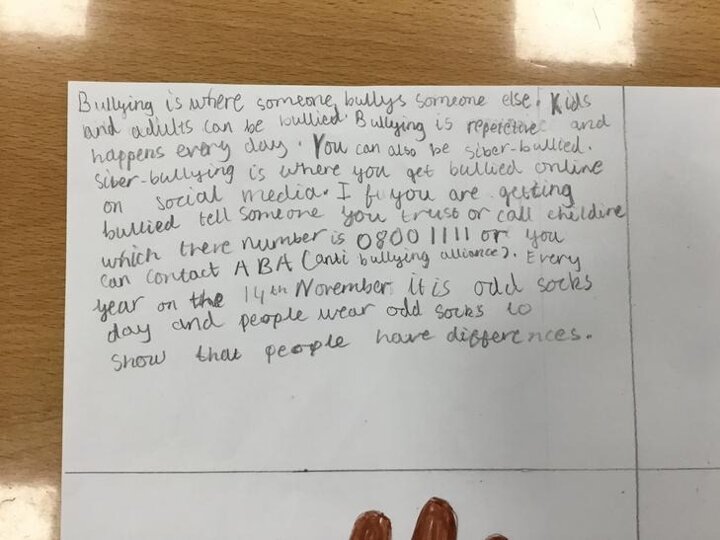 Bullying is where someone bullys someone else. Kids
and adults can be bullied. Bullying is repetetive and
happens every day. You can also be siber-bullied.
Siber-bullying is where you get bullied online
on social media. If you are getting
bullied tell someone you trust or call childline
which there number is 0800 1111 or you
can contact ABA (anti bullying alliance). Every
year on the 14th November it is odd socks
day and people wear odd socks to
show that people have differences.